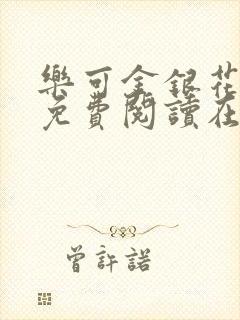 樂可金銀花
免費閱讀在
曾許諾